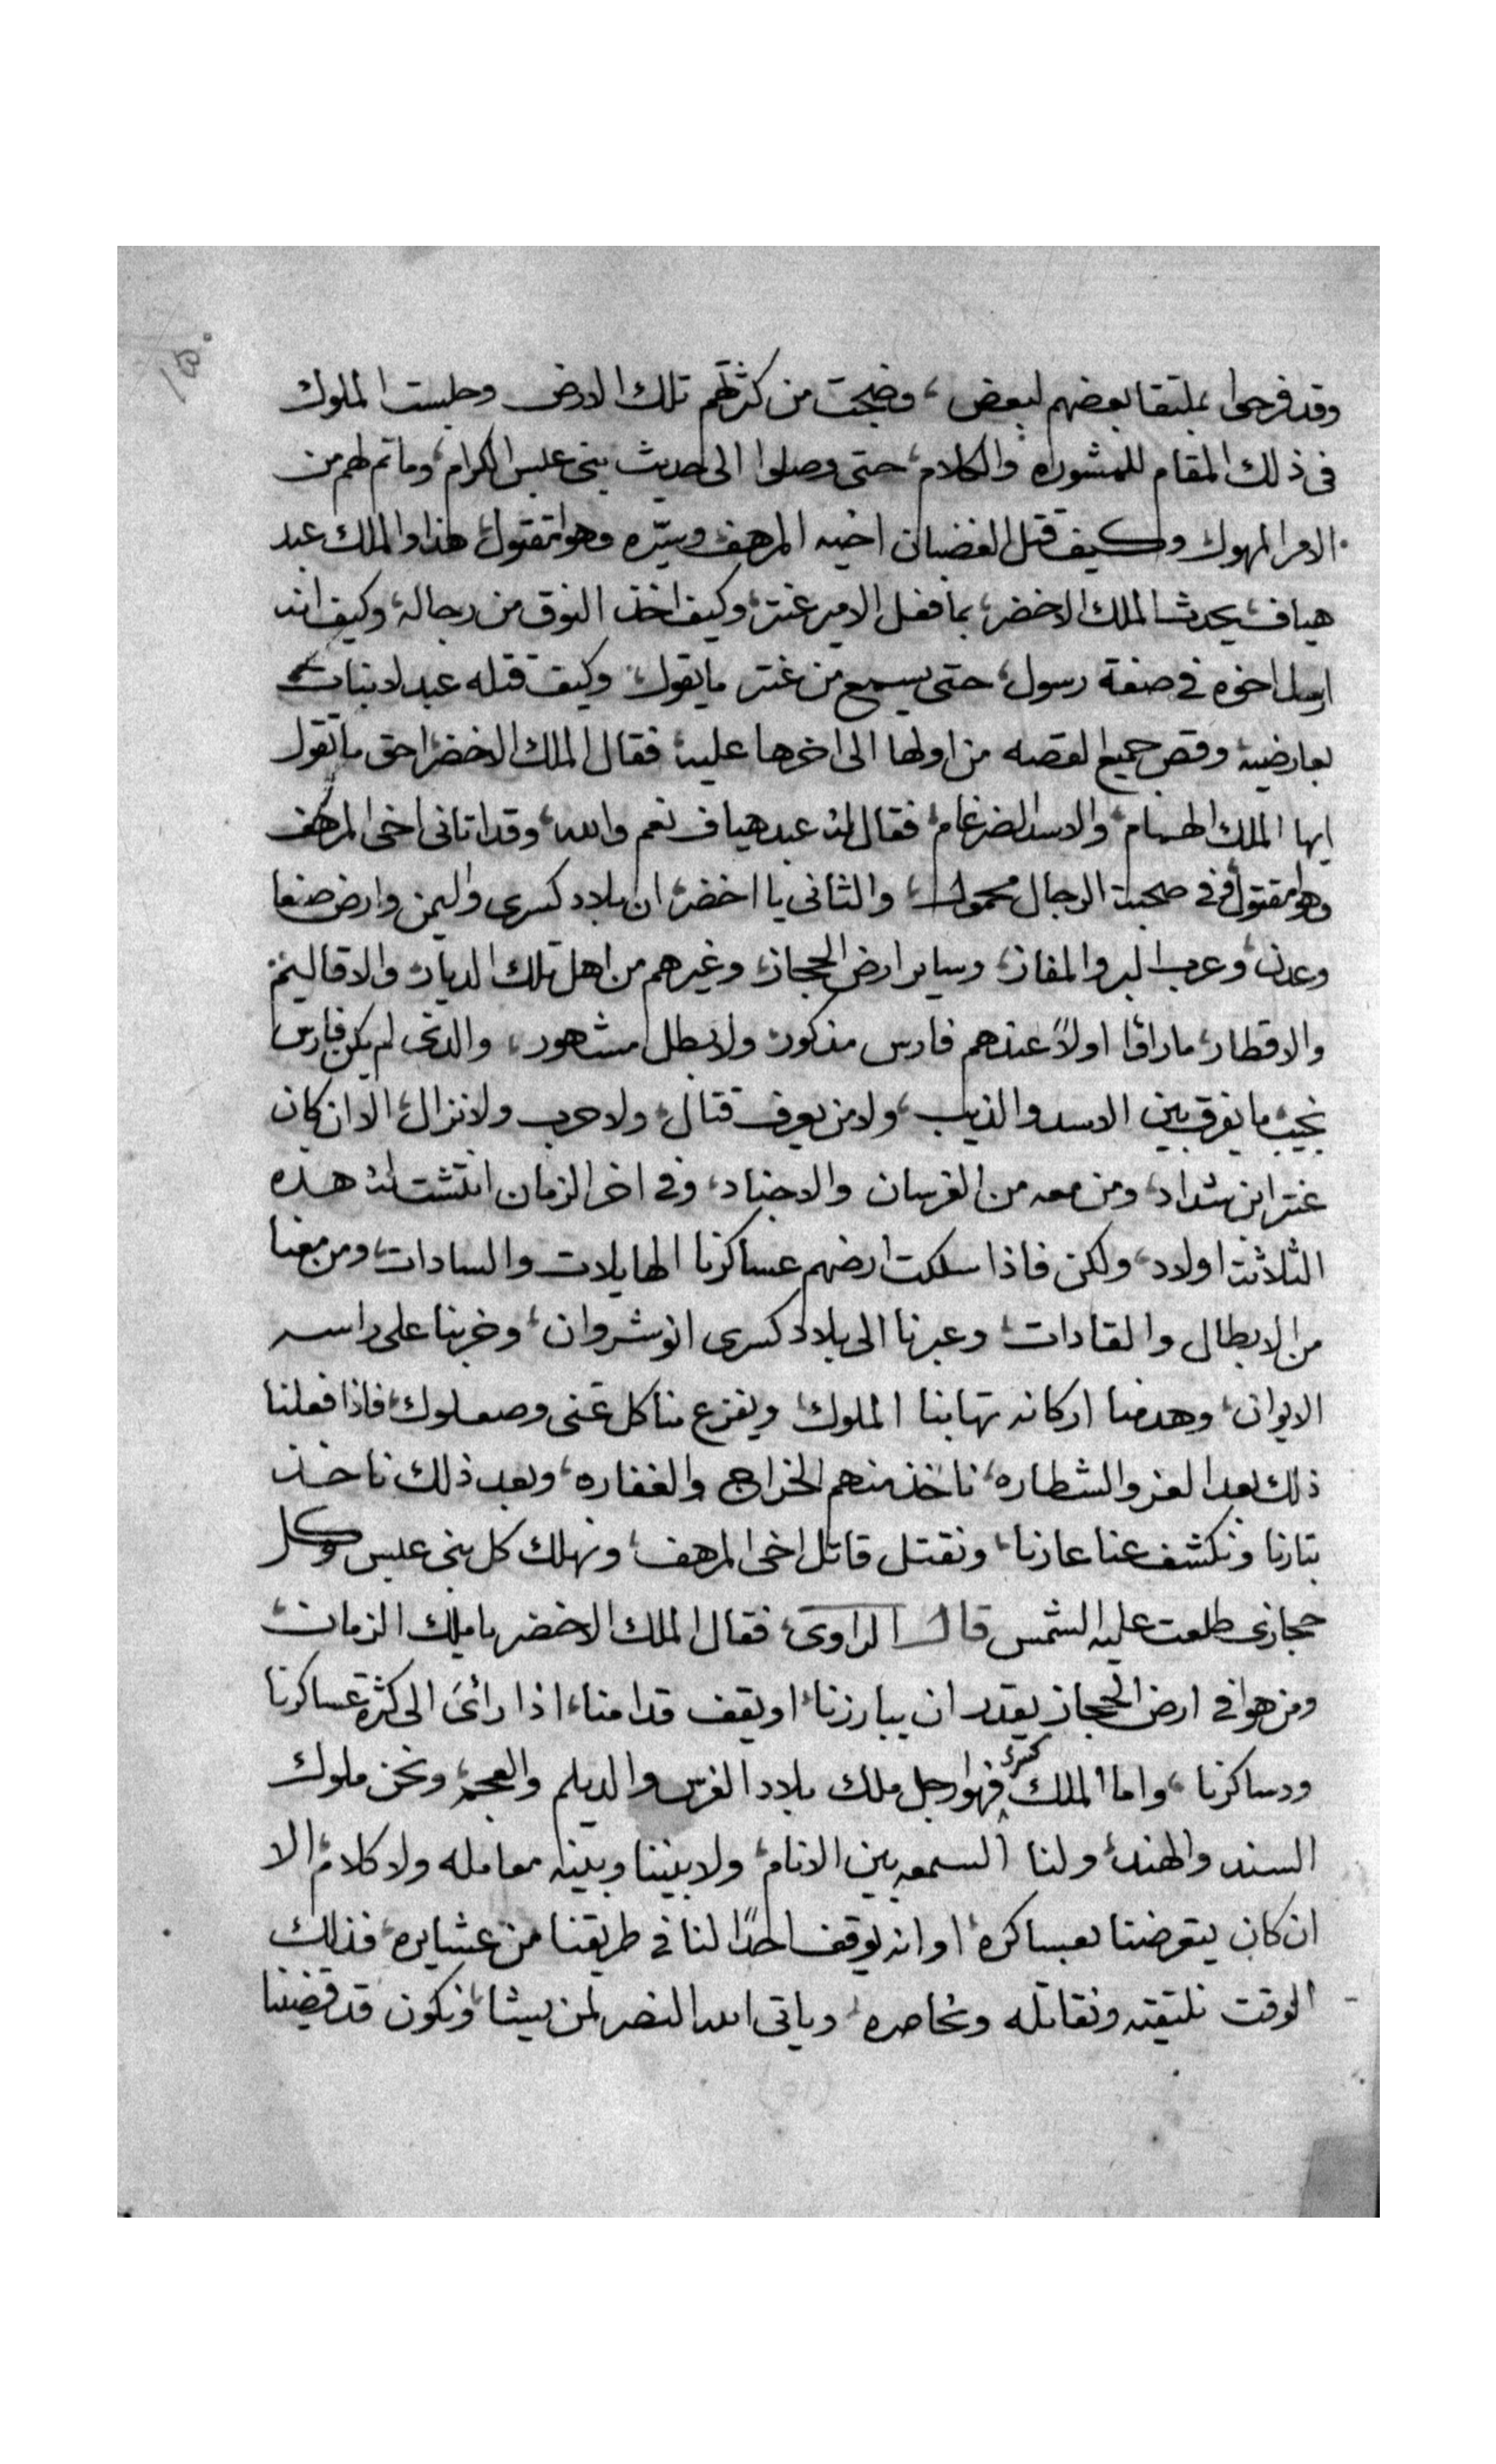 ١٥٠
وقد فرحوا بملتقا بعضهم لبعض، وضجت من كثرتهم تلك الارض وجلست الملوك
فى ذلك المقام للمشوره والكلام، حتى وصلوا الى حديث بنى عبس الكرام، وما تم لهم من
الامر المهول وكيف قتل الغضبان اخيه المرهف وسيّره وهوا مقتول، هذا والملك عبد
هياف يحدث الملك الاخضر، بما فعل الامير عنتر، وكيف اخذ النوق من رجاله، وكيف انه
ارسل اخوه في صفة رسول، حتى يسمع من عنتر ما يقول، وكيف قتله عبد لا بنبات
بعارضيه وقص جميع القصه من اولها الى اخرها عليه، فقال الملك الاخضر احق ما تقول
ايها الملك الهمام، والاسد الضرغام، فقال له عبد هياف نعم والله، وقد اتانى اخى المرهف
وهوا مقتول وفى صحبة الرجال محمول، والثانى يا اخضر، ان بلاد كسرى واليمن وارض صنعا
وعدن، وعرب البر والمفاز، وساير ارض الحجاز، وغيرهم من اهل تلك الديار، والاقاليم
والاقطار، ما راؤا اولاً عندهم فارس مذكور، ولا بطل مشهور، والذى لم يكن فارس
نجيب، ما يفرق بين الاسد والذيب، ولا من يعرف قتال، ولا حرب ولا نزال، الا ان كان
عنتر ابن شداد، ومن معه من الفرسان والاجناد، وفى اخر الزمان انتشت له هذه
الثلاثة اولاد، ولكن فاذا سلكت ارضهم عساكرنا الهايلات والسادات، ومن معنا
من الابطال والقادات، وعبرنا الى بلاد كسرى انوشروان، وخربنا على راسه
الايوان، وهدمنا اركانه تهابنا الملوك، ويفزع منا كل غنى وصعلوك، فاذا فعلنا
ذلك بعد العز والشطاره، ناخذ منهم الخراج والغفاره، وبعد ذلك ناخذ
بتارنا ونكشف عنا عارنا، ونقتل قاتل اخى المرهف، ونهلك كل بنى عبس وكل
حجازى طلعت عليه الشمس قال الراوى، فقال الملك الاخضر يا ملك الزمان،
ومن هوا في ارض الحجاز يقدر ان يبارزنا، او يقف قدامنا، اذا رائى الى كثرة عساكرنا
ودساكرنا، واما الملك كسرى فهوا رجل ملك بلاد الفرس والديلم والعجم، ونحن ملوك
السند والهند، ولنا السمعه بين الانام، ولا بيننا وبينه معامله ولا كلام، الا
ان كان يتعرضنا بعساكره، او انه يوقف احدًا لنا في طريقنا من عشايره، فذلك
الوقت نلتقيه ونقاتله ونحاصره، وياتى الله النصر لمن يشا، ونكون قد قضينا